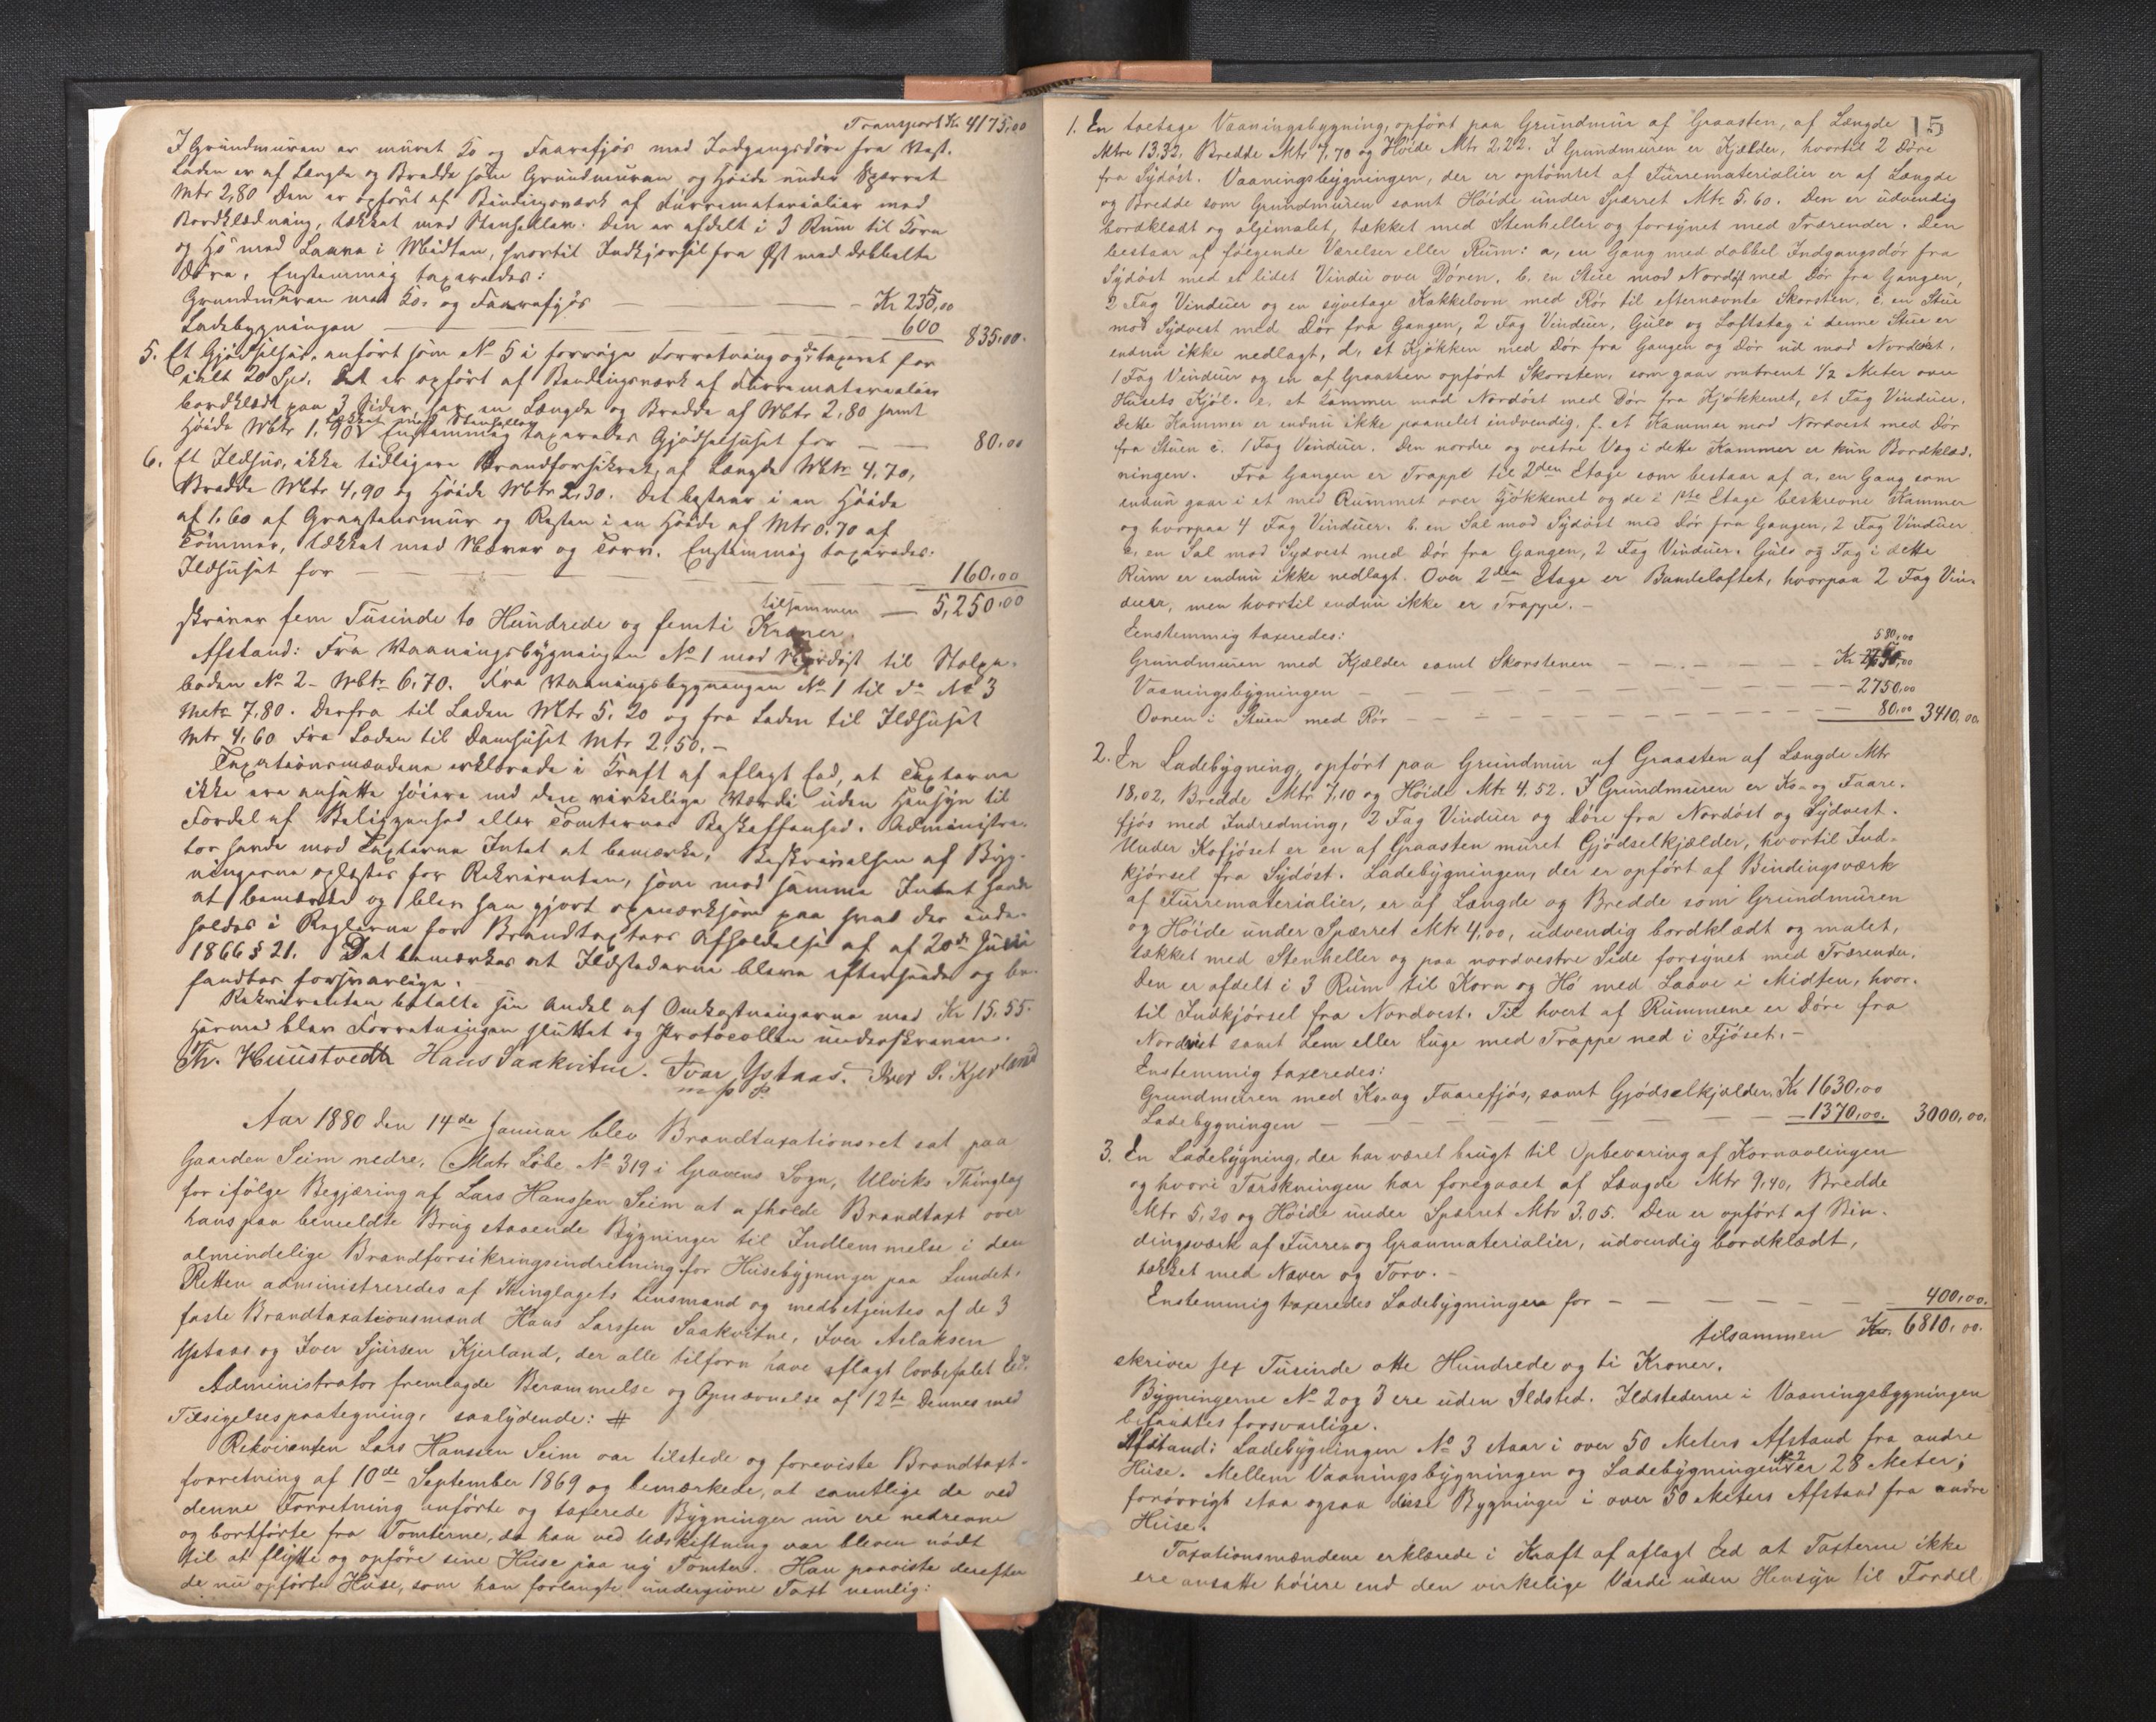 Transport Kr. 4175,00
I Grundmuren er muret Ko og Faarefjøs med Indgangsdøre fra Vest.
Laden er af Længde og Bredde som Grundmuren og Høide under Sperret
Mtr 2,80 Den er opført af Bindingsværk af Furrematerialier med
Bordklædning, tækket med Stenheller. Den er afdelt i 3 Rum til Korn
og Hø med Laave i Midten, hvortil Indkjørsel fra Øst med dobbelte
Døre. Enstemmig taxeredes:
Grundmuren med Ko- og Faarefjøs — — Kr 235,00
Ladebygningen — — 600 835,00.
5. Et Gjødselhus, anført som No 5 i forrige Forretning og da taxeret for
ialt 20 Spd. Det er opført af Bindingsværk af Furrematerialier
bordklædt paa 3 Sider, har en Længde og Bredde af Mtr 2,80 samt
Høide Mtr 1,90 tækket med Stenheller Enstemmig taxeredes Gjødselhuset for — — 80,00
6. Et Ildhus, ikke tidligere Brandforsikret, af Længde Mtr 4,70,
Bredde Mtr 4,90 og Høide Mtr 2,30. Det bestaar i en Høide
af 1,60 af Graastensmur og Resten i en Høide af Mtr 0,70 af
Tømmer, tækket med Næver og Torv. Enstemmig taxeredes
Ildhuset for — — — 160,00
tilsammen — 5,250,00
skriver fem Tusinde to Hundrede og femti Kroner.
Afstand: Fra Vaaningsbygningen No 1 mod Nordøst til Stolpe-
boden No 2 - Mtr 6,70. Fra Vaaningsbygningen No 1 til Do No 3
Mtr 7,80. Derfra til Laden Mtr 5,20 og fra Laden til Ildhuset
Mtr 4,60 Fra Laden til Damhuset Mtr 2,50. —
Taxationsmændene erklærede i Kraft af aflagt Ed, at Taxterne
ikke ere ansatte høiere end den virkelige Værdi uden Hensyn til
Fordel af Beliggenhed eller Tomternes Beskaffenhed. Administra-
tor havde mod Taxterne Intet at bemærke. Beskrivelsen af Byg-
ningerne oplæstes for Rekvirenten, som mod samme Intet havde
at bemærke og blev han gjort opmærksom paa hvad der inde-
holdes i Reglerne for Brandtaxters Afholdelse af af 20de Juni
1866 § 21. Det bemærkes at Ildstederne bleve efterseede og be-
fandtes forsvarlige.
Rekvirenten betalte sin Andel af Omkostningerne med Kr 15,55.
Hermed blev Forretningen sluttet og Protocollen underskreven.
Th. Huustvedt Hans Saakvitne. Ivar Ystaas. Iver S. Kjerland
m p P
Aar 1880 den 14de Januar blev Brandtaxationsret sat paa
Gaarden Seim nedre, Matr. Løbe No 319 i Gravens Sogn, Ulviks Thinglag
for ifølge Begjæring af Lars Hanssen Seim at afholde Brandtaxt over
hans paa bemeldte Brug staaende Bygninger til Indlemmelse i den
almindelige Brandforsikringsindretning for Husebygninger paa Landet.
Retten administreredes af Thinglagets Lensmand og medbetjentes af de 3
faste Brandtaxationsmænd Hans Larssen Saakvitne, Iver Aslaksen
Ystaas og Iver Sjursen Kjerland, der alle tilforn have aflagt lovbefalet Ed.
Administrator fremlagde Berammelse og Opnævnelse af 12te Dennes med
Tilsigelsespaategning, saalydende: #
Rekvirenten Lars Hanssen Seim var tilstede og foreviste Brandtaxt-
forretning af 10de September 1869 og bemærkede, at samtlige de ved
denne Forretning anførte og taxerede Bygninger nu ere nedrevne
og bortførte fra Tomterne, da han ved Udskiftning var bleven nødt
til at flytte og opføre sine Huse paa ny Tomter. Han paaviste derefter
de nu opførte Huse, som han forlangte undergivne Taxt nemlig:
15
1. En toetage Vaaningsbygning, opført paa Grundmur af Graasten, af Længde
Mtr 13,32, Bredde Mtr 7,70 og Høide Mtr 2,22. I Grundmuren er Kjelder, hvortil 2 Døre
fra Sydøst. Vaaningsbygningen, der er optømret af Furrematerialier er af Længde
og Bredde som Grundmuren samt Høide under Sperret Mtr 5,60. Den er udvendig
bordklædt og oljemalet, tækket med Stenheller og forsynet med Trærender. Den
bestaar af følgende Værelser eller Rum: a, en Gang med dobbel Indgangsdør fra
Sydøst med et lidet Vindu over Døren. b. en Stue mod Nordøst med Dør fra Gangen,
2 Fag Vinduer og en syvetage Kakkelovn med Rør til efternævnte Skorsten. c. en Stue
mod Sydvest med Dør fra Gangen, 2 Fag Vinduer, Gulv og Loftstag i denne Stue er
endnu ikke nedlagt, d, et Kjøkken med Dør fra Gangen og Dør ud mod Nordvest,
1 Fag Vinduer og en af Graasten opført Skorsten, som gaar omtrent 1/2 Meter over
Husets Kjøl. e, et Kammer mod Nordøst med Dør fra Kjøkkenet, et Fag Vinduer.
Dette Kammer er endnu ikke paanelet indvendig. f. et Kammer mod Nordvest med Dør
fra Stuen c. 1 Fag Vinduer. Den nordre og vestre Væg i dette Kammer er kun Bordklæd-
ningen. Fra Gangen er Trappe til 2den Etage som bestaar af a, en Gang som
endnu gaar i et med Rummet over Kjøkkenet og de i 1ste Etage beskrevne Kammer
og hvorpaa 4 Fag Vinduer. b. en Sal mod Sydøst med Dør fra Gangen, 2 Fag Vinduer
c, en Sal mod Sydvest med Dør fra Gangen, 2 Fag Vinduer. Gulv og Tag i dette
Rum er endnu ikke nedlagt. Over 2den Etage er Bundeloftet, hvorpaa 2 Fag Vin-
duer, men hvortil endnu ikke er Trappe. —
Eenstemmig taxeredes:
Grundmuren med Kjælder samt Skorstenen — — — Kr 580,00
Vaaningsbygningen — — — 2750,00
Ovnen i Stuen med Rør — — — 80,00 3410,00.
2. En Ladebygning, opført paa Grundmur af Graasten af Længde Mtr
18,02, Bredde Mtr 7,10 og Høide Mtr 4,52. I Grundmuren er Ko- og Faare-
fjøs med Indredning, 2 Fag Vinduer og Døre fra Nordøst og Sydvest.
Under Kofjøset er en af Graasten muret Gjødselkjælder, hvortil Ind-
kjørsel fra Sydøst. Ladebygningen, der er opført af Bindingsværk
af Furrematerialier, er af Længde og Bredde som Grundmuren
og Høide under Spærret Mtr 4,00, udvendig bordklædt og malet,
tækket med Stenheller og paa nordvestre Side forsynet med Trærender.
Den er afdelt i 3 Rum til Korn og Hø med Laave i Midten, hvor-
til Indkjørsel fra Nordvest. Til hvert af Rummene er Døre fra
Nordvest samt Lem eller Luge med Trappe ned i Fjøset. —
Enstemmig taxeredes:
Grundmuren med Ko- og Faarefjøs, samt Gjødselkjelder. Kr 1630,00
Ladebygningen — — — 1370,00. 3000,00.
3. En Ladebygning, der har været brugt til Opbevaring af Kornavlingen
og hvori Tærskningen har foregaaet af Længde Mtr 9,40, Bredde
Mtr 5,20 og Høide under Spærret Mtr 3,05. Den er opført af Bin-
dingsværk af Furre og Granmaterialier, udvendig bordklædt,
tækket med Næver og Torv. —
Enstemmig taxeredes Ladebygningen for — — — 400,00.
tilsammen Kr. 6810,00.
skriver sex Tusinde otte Hundrede og ti Kroner.
Bygningerne No 2 og 3 ere uden Ildsted. Ildstederne i Vaaningsbygningen
befandtes forsvarlige.
Afstand: Ladebygningen No 3 staar i over 50 Meters Afstand fra andre
Huse. Mellem Vaaningsbygningen og Ladebygningen No 2 er 28 Meter;
forøvrigt staa ogsaa disse Bygninger i over 50 Meters Afstand fra andre
Huse.
Taxationsmændene erklærede i Kraft af aflagt Ed at Taxterne ikke
ere ansatte høiere end den virkelige Værdi uden Hensyn til Fordel